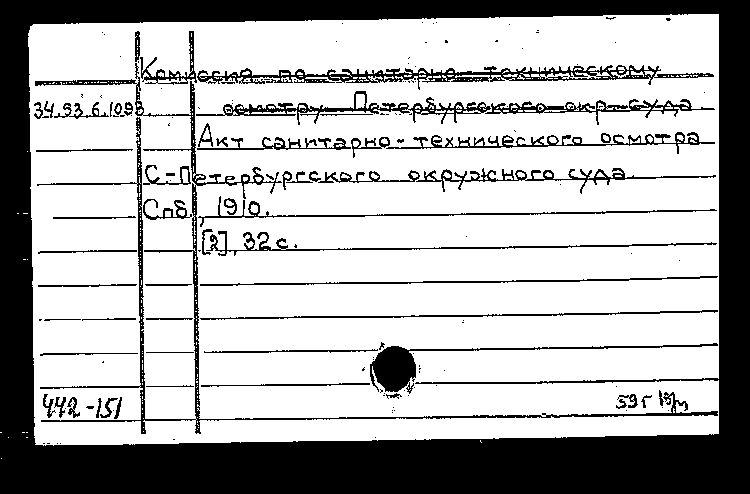 Комиссия по санитарно-техническому
34.93.6.1093. осмотру Петербургского окр. суда.
Акт санитарно-технического осмотра
С-Петербургского окружного суда.
Спб., 1910.
[2], 32 с.
442-151
59г